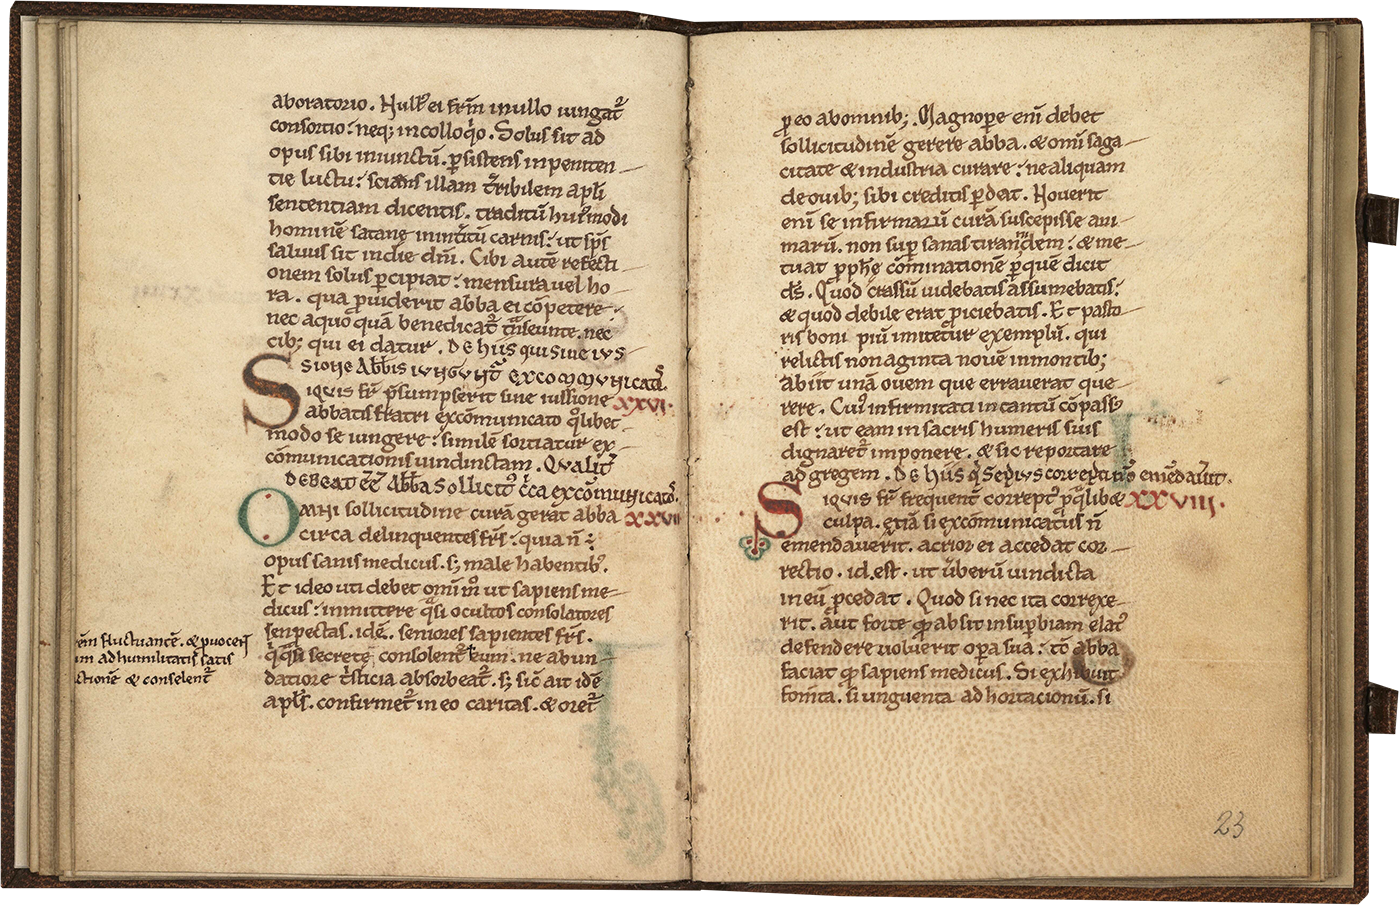 aboratorio. Null᷒ ei fr̄m in ullo iungat᷑
consortio: neq; in colloq̇o. Solus sit ad
opus sibi iniunctū. ꝑsistens in peniten-
tie luctu: sciens illam t̄ribilem apl̄i
sententiam dicentis. traditū hui᷒modi
hominē satane in int̄itū carnis: ut sp̄s
saluus sit in die dn̄i. Cibi autē refecti-
onem solus ꝑcipiat: mensura uel ho-
ra. qua p̄uiderit abba ei cōpetere.
nec a quoquā benedicat᷑ t̄nseunte. nec
cib; qui ei datur. De hiis qui sine ius-
sione Abb̄is iungunt᷑ excommunicat̄.
Siquis fr̄ p̄sumpserit sine iussione XXVI.
abbatis fratri excōmunicato q̄libet
modo se iungere: similē sortiatur ex-
cōmunicationis uindictam. Qualit̄
debeat ēē Abba sollicit᷒ c̄ca excōmunicat̄.
Omni sollicitudine curā gerat abba XXVII
circa delinquentes fr̄s: quia n̄:
opus sanis medicus. s; male habentib᷒.
Et ideo uti debet om̄i m̊ ut sapiens me-
dicus: inmittere q̄si ocultos consolatores
senpectas. id ē. seniores sapientes fr̄s.
q̇ q̄si secrete consolent᷑ eum. ne abun-
datiore ṫsticia absorbeat᷑. s; sic̄ ait idē
apl̄s. confirmet᷑ in eo caritas. & oret᷑
fr̄em fluctuantē. & ꝓuocen̄t
ad humilitatis satis
ctionē & conselent᷑
ꝓ eo ab omnib;. Magnopere eni̅ debet
sollicitudinē gerere abba. & om̄i saga-
citate & industria curare: ne aliquam
de ouib; sibi creditis ꝑdat. Nouerit
eni̅ se infirmarū curā suscepisse ani-
marū. non suꝑ sanas tirannidem: & me-
tuat ꝓph̄e cōminationē ꝑ quē dicit
ds̄. Quod crassū uidebatis assumebatis:
& quod debile erat ꝓiciebatis. Et pasto-
ris boni piū imitetur exemplū. qui
relictis nonaginta nouē in montib;
abiit unā ouem que errauerat que-
rere. Cui᷒ infirmitati in cantū cōpass᷒
est: ut eam in sacris humeris suis
dignaret᷑ imponere. & sic reportare
ad gregem. De hiis q̇ sepius correpti n̄ emēdau̅t.
Siquis fr̄ frequent̄ corrept᷒ ꝓ q̄libet XXVIII.
culpa. etiā si excōmunicatus n̄
emendauerit. acrior ei accedat cor-
rectio. id. est. ut ūberū uindicta
in eū ꝓcedat. Quod si nec ita correxe-
rit. aut forte qď absit in suꝑbiam elat᷒
defendere uoluerit oꝑa sua: tc̄ abba
faciat qď sapiens medicus. Si exhibuit
fom̄ta. si unguenta adhortacionū. si
23